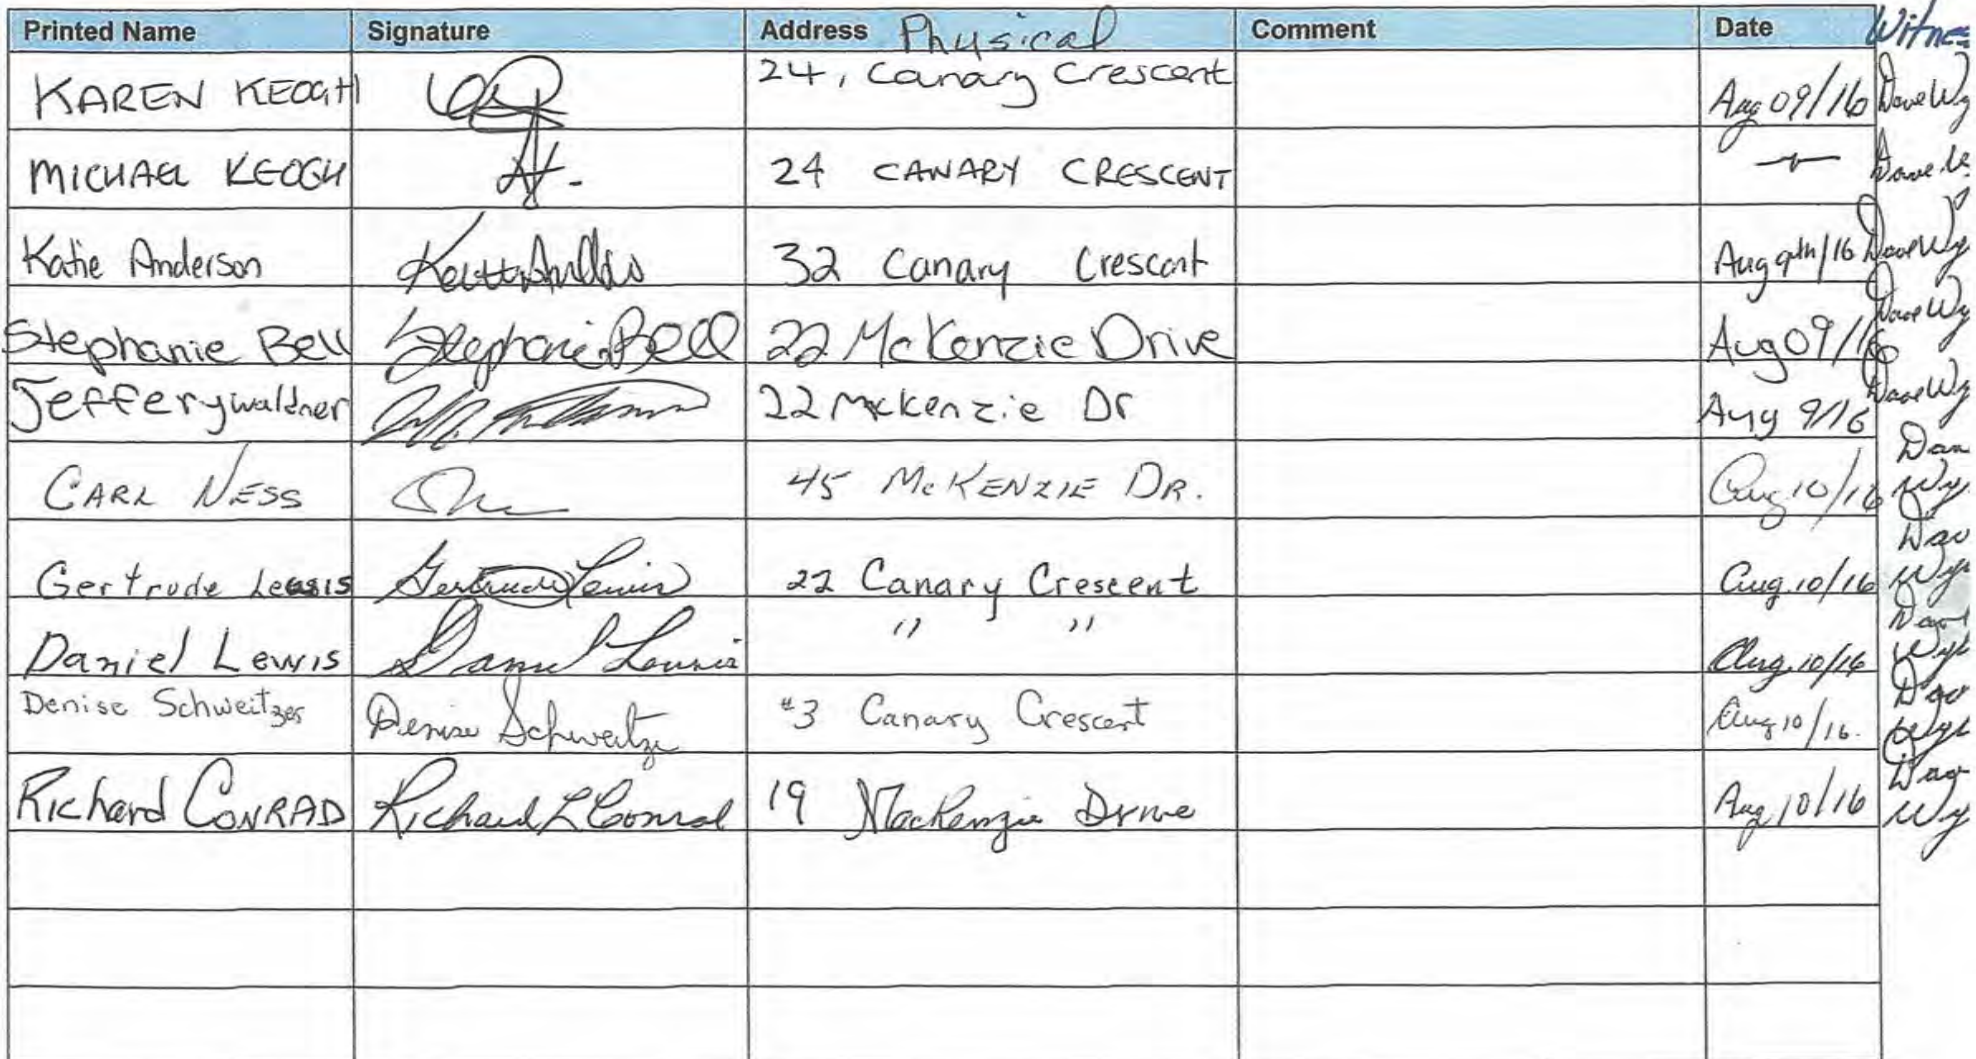 Printed Name Signature Address Physical Comment Date Witnes
KAREN KEOGH 24, Canary Crescent Aug 09/16 Dave Wy
MICHAEL KEOGH 24 CANARY CRESCENT Dave
Katie Anderson 32 Canary Crescent Aug 9th/16 Dave Wy
Stephanie Bell Stephanie Bell 22 McKenzie Drive Aug 09/16 Dave Wy
Jeffery waldner 22 Mckenzie Dr Aug 9/16 Dave Wy
CARL NESS 45 McKENZIE DR. Aug 10/16 Dav Wy
Gertrude Lewis Gertrude Lewis 22 Canary Crescent Aug. 10/16 Dav Wy
Daniel Lewis Daniel Lewis " " Aug. 10/16 Dav Wyl
Denise Schweitzer Denise Schweitze #3 Canary Crescent Aug 10/16. Dav Wyl
Richard CONRAD Richard L Conrad 19 MacKenzie Drive Aug 10/16 Dav Wy